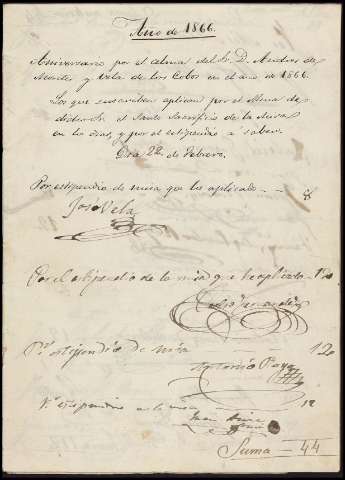 Año de 1866.
Aniversario por el alma del Sr. D. Andres de
y Vela de los Cobos en el año de 1866.
Los que suscriben aplican por el Alma de
dicho Sr. el Santo Sacrificio de la Misa
en la dias, y por el estipendio á saber.
Dia 22 de Febrero.
Por estipendio de misa que he aplicado - - 8
José Vela
Por el estipendio de la misa que he aplicado 12
Pr. estipendio de misa 12
Antonio
Pr. estipendio de la misa 12
Juan
Suma - 44